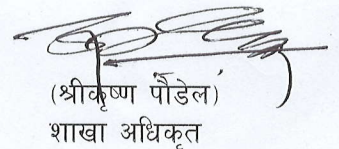 (श्रीकृष्ण पौडेल)
शाखा अधिकृत